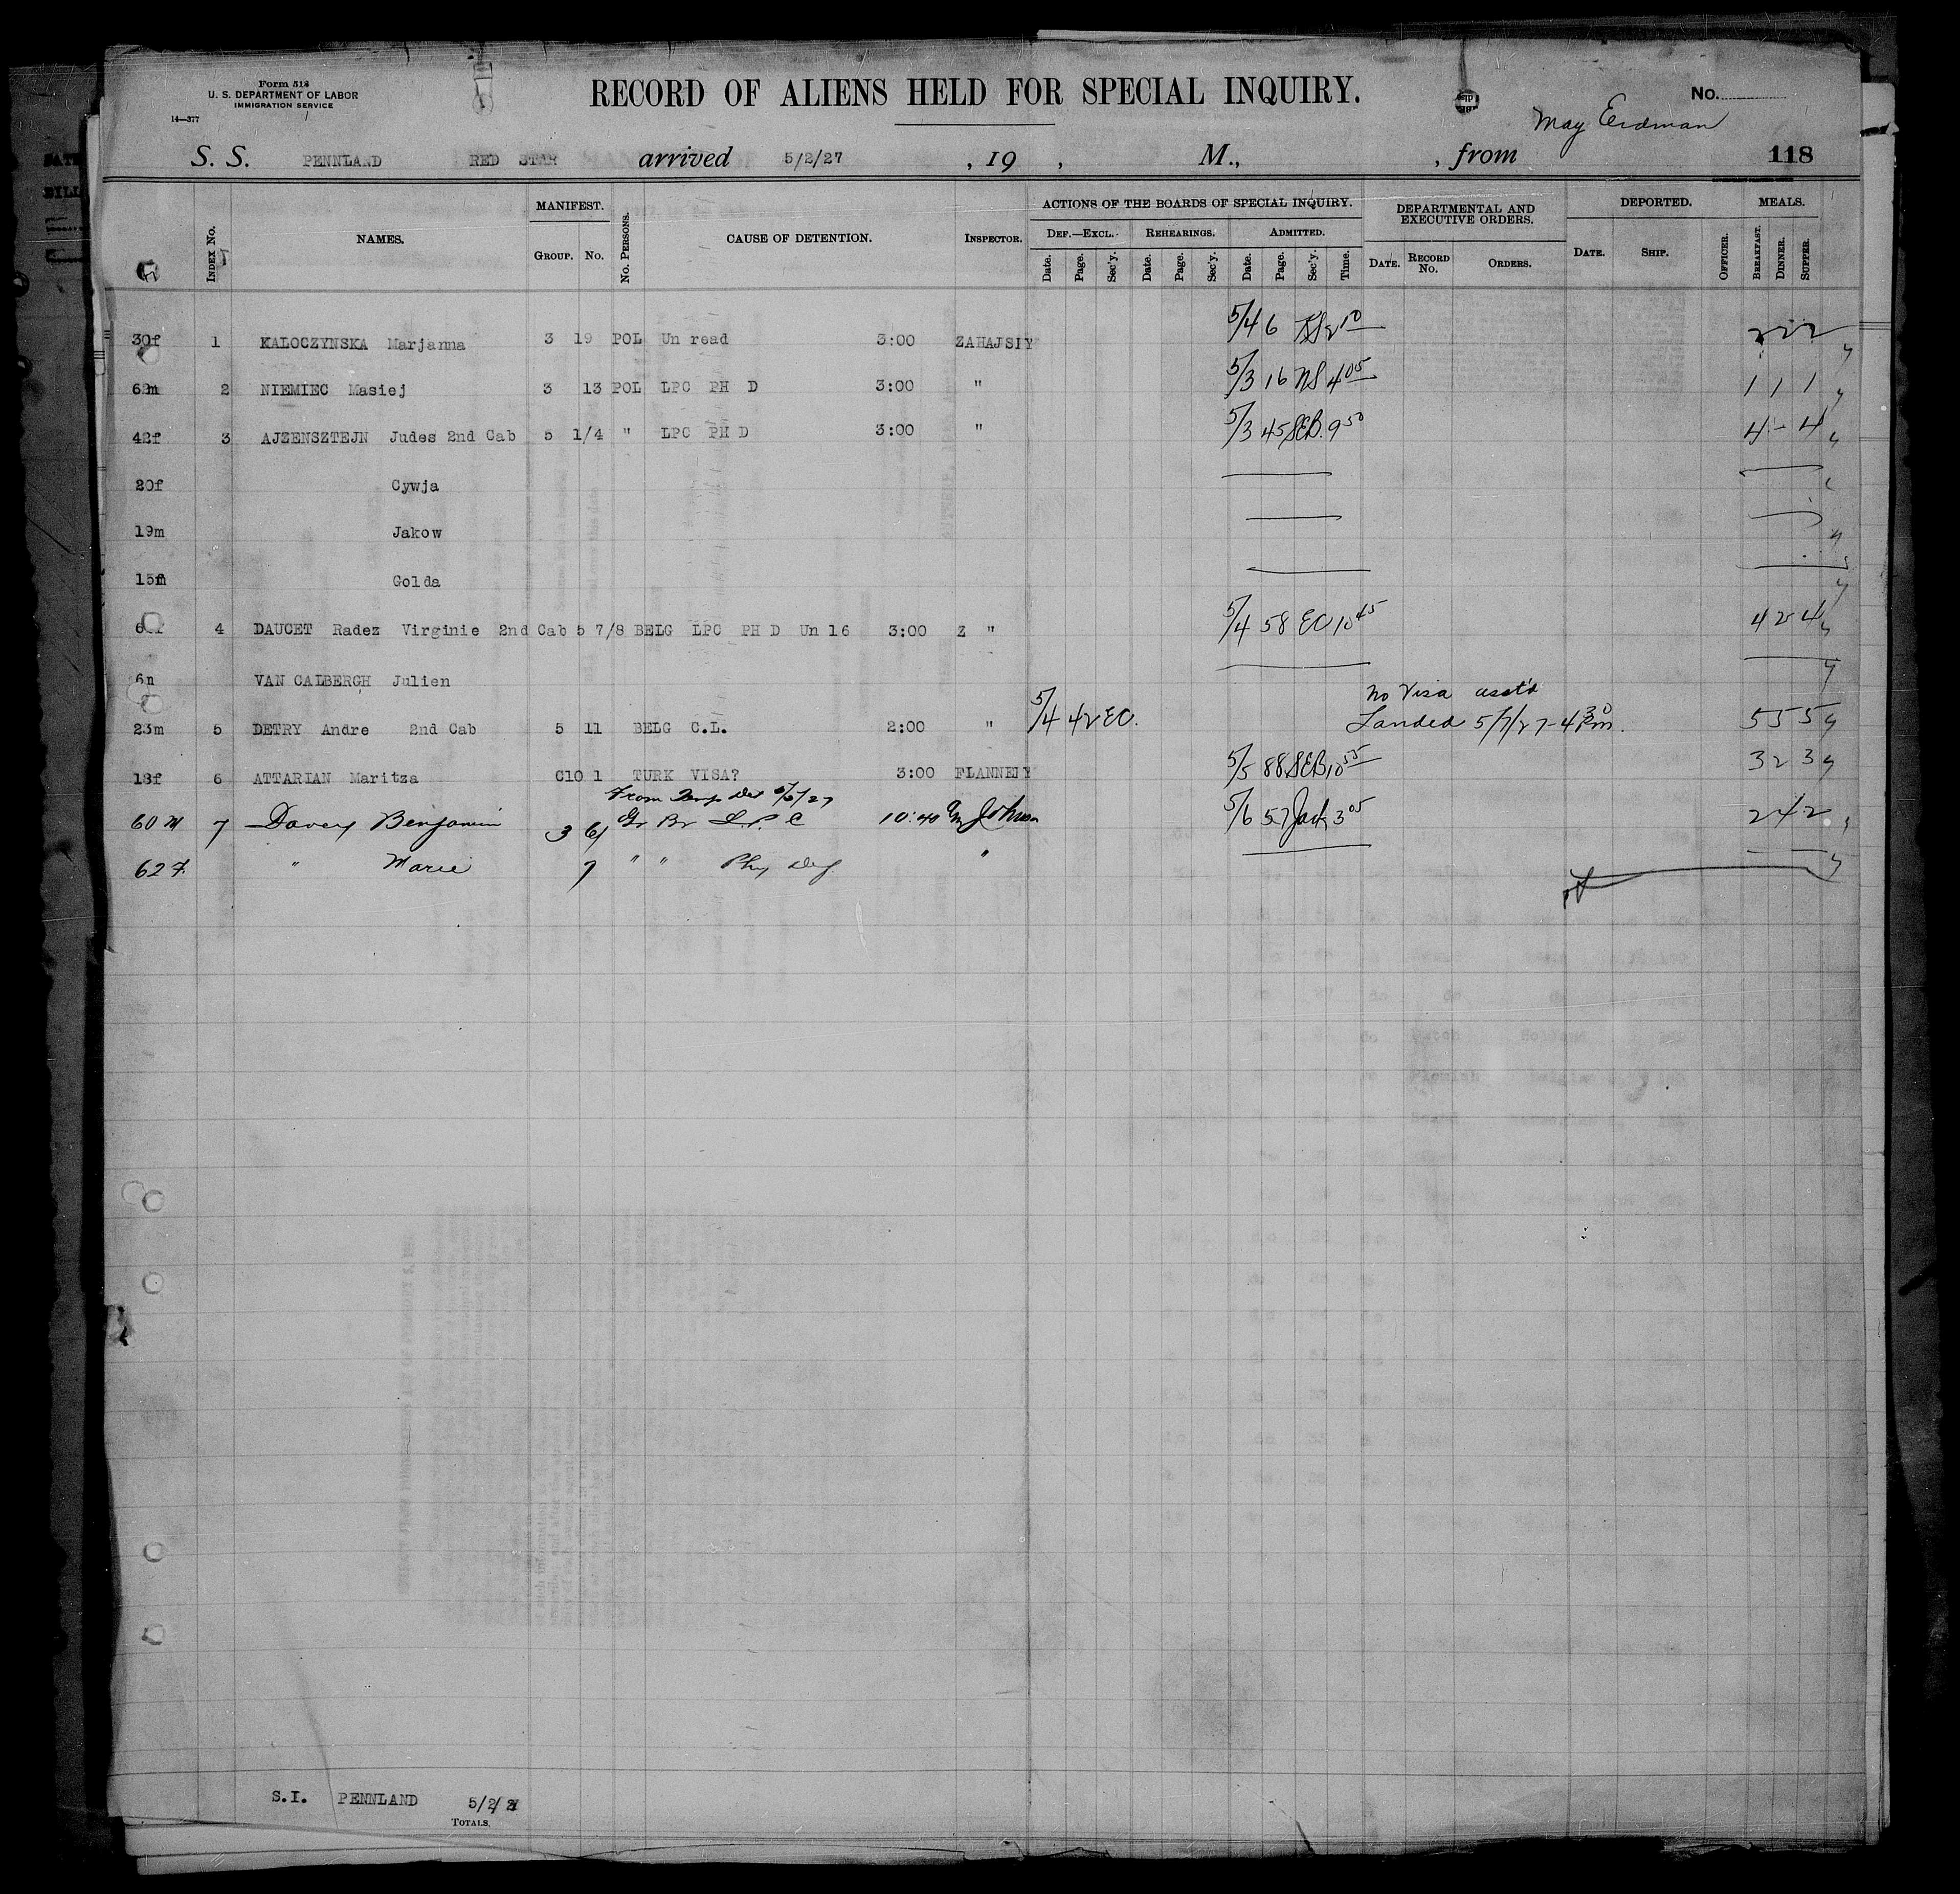 Form 518
U. S. DEPARTMENT OF LABOR
IMMIGRATION SERVICE
14—377
RECORD OF ALIENS HELD FOR SPECIAL INQUIRY.
No.
May Erdman
S. S. PENNLAND RED STAR arrived 5/2/27 , 19 , M., , from 118
Index No. NAMES. MANIFEST. Group. No. No. Persons. CAUSE OF DETENTION. Inspector. ACTIONS OF THE BOARDS OF SPECIAL INQUIRY. Def.—Excl. Date. Page. Sec'y. Rehearings. Date. Page. Sec'y. Admitted. Date. Page. Sec'y. Time. DEPARTMENTAL AND EXECUTIVE ORDERS. Date. Record No. Orders. DEPORTED. Date. Ship. Officer. MEALS. Breakfast. Dinner. Supper.
30f 1 KALOCZYNSKA Marjanna 3 19 POL Un read 3:00 ZAHAJSIY 5/4 6 2 10 2 2 2
62m 2 NIEMIEC Masiej 3 13 POL LPC PH D 3:00 " 5/3 16 NS 4 05 1 1 1
42f 3 AJZENSZTEJN Judes 2nd Cab 5 1/4 " LPC PH D 3:00 " 5/3 45 SEB. 9 50 4 - 4
20f Cywja
19m Jakow
15f Golda
4 DAUCET Radez Virginie 2nd Cab 5 7/8 BELG LPC PH D Un 16 3:00 Z " 5/4 58 EO 10 45 4 2 4
6m VAN CALBERGH Julien
23m 5 DETRY Andre 2nd Cab 5 11 BELG C.L. 2:00 " 5/4 42 EO. No Visa
Landed 5/7/27 - 4 30 Pm. 5 5 5
18f 6 ATTARIAN Maritza C10 1 TURK VISA? 3:00 FLANNELY 5/5 88 SEB 10 55 3 2 3
From Temp Det 5/5/27
60 M 7 Davey Benjamin 3 6 Gr Br L.P.C 10:40 Johnson 5/6 57 Jack 3 05 2 4 2
62 F. " Marie 7 " " Phy Def "
S.I. PENNLAND 5/2/27
Totals.